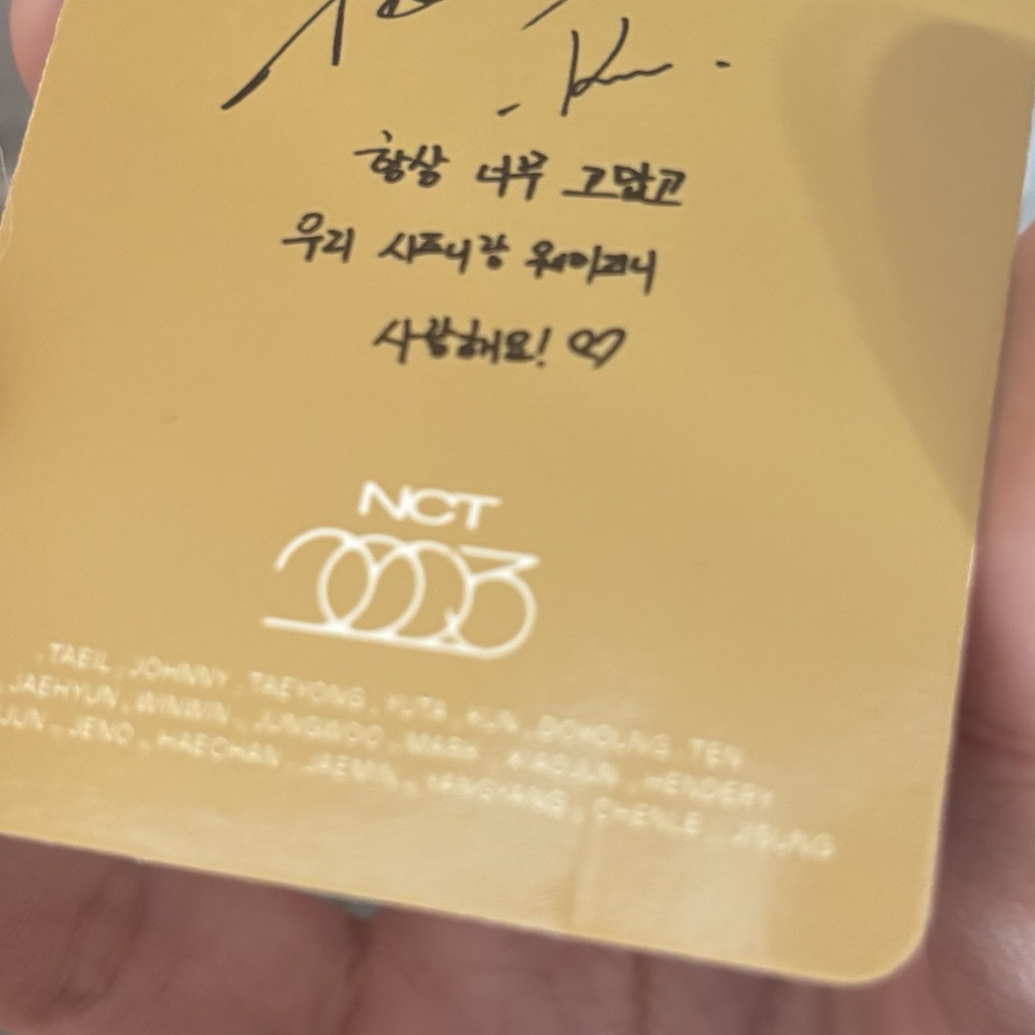 Kun.
항상 너무 고맙고
우리 시즈니랑 웨이즈니
사랑해요! ♡
NCT
2023
TAEIL, JOHNNY, TAEYONG, YUTA, KUN, DOYOUNG, TEN,
JAEHYUN, WINWIN, JUNGWOO, MARK, XIAOJUN, HENDERY
JENO, HAECHAN, JAEMIN, YANGYANG, CHENLE, JISUNG